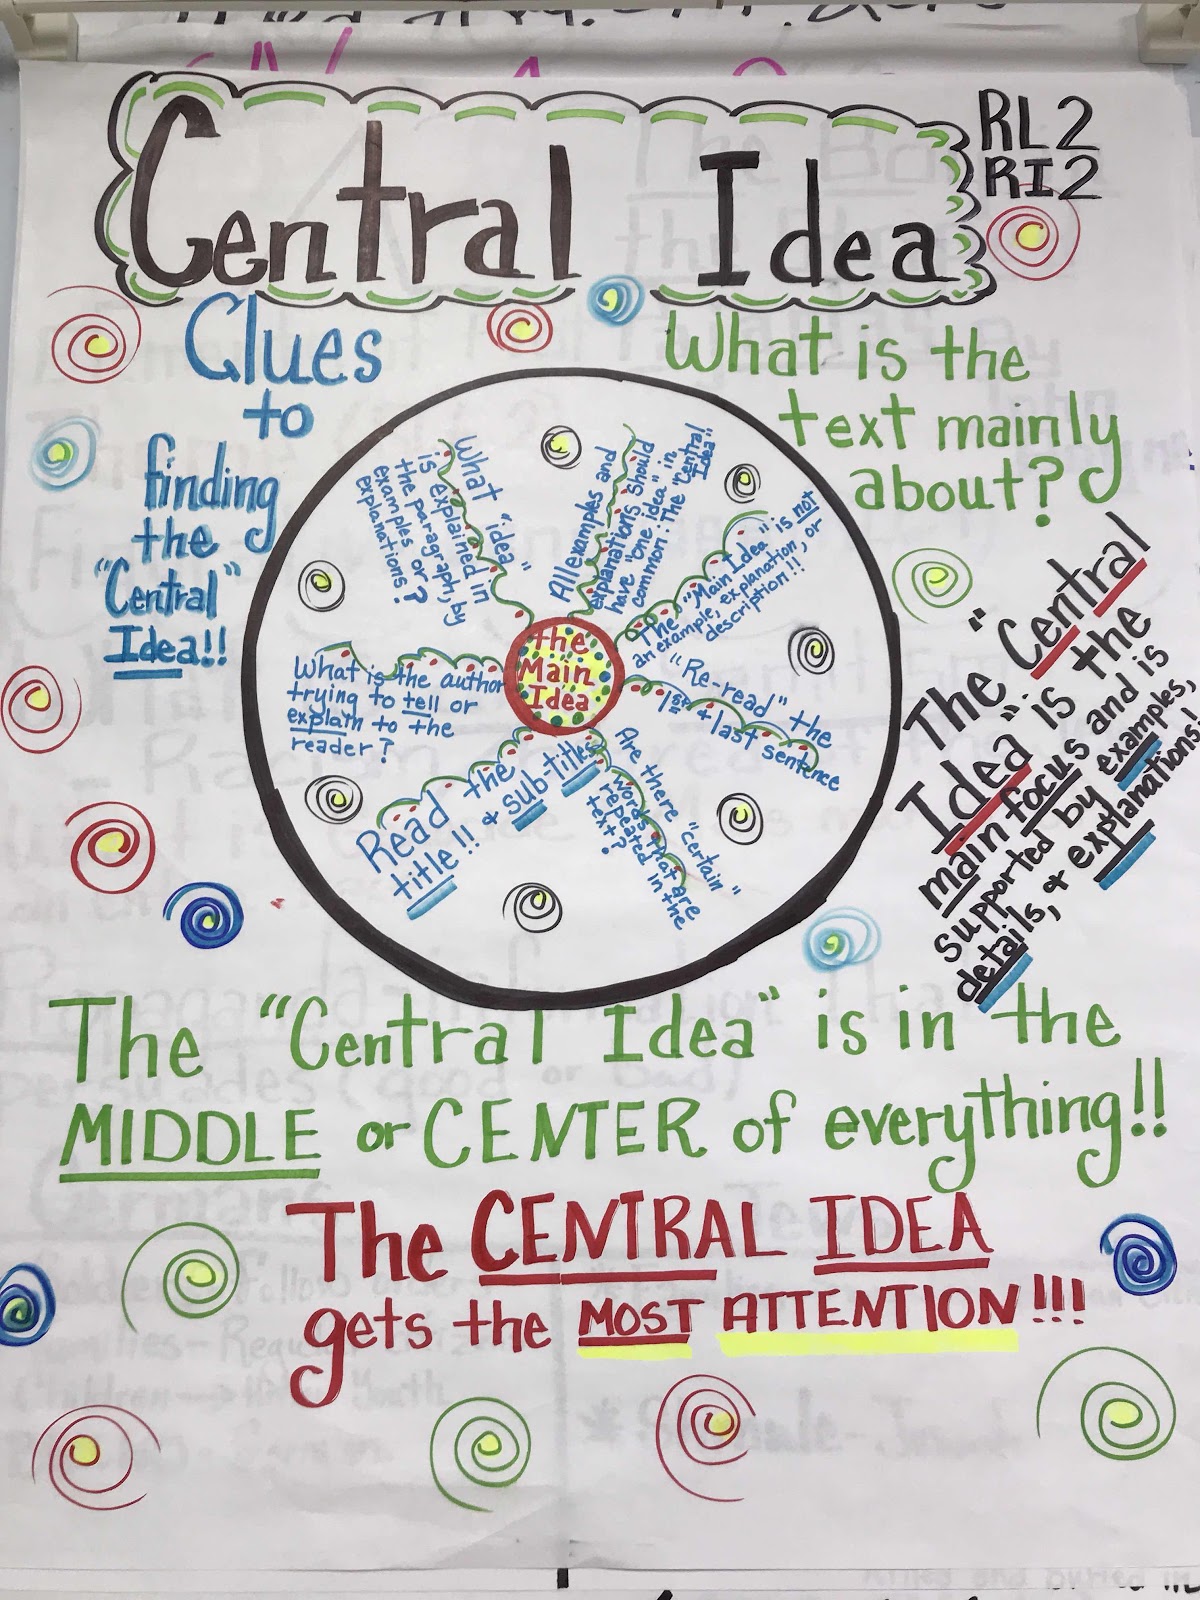 Central Idea
RL2
RI2
Clues
to
finding
the
"Central"
Idea!!
What is the
text mainly
about?
The "Central
Idea" is the
main focus and is
supported by examples,
details, & explanations!
What "idea"
is explained in
the paragraph, by
examples or
explanations?
All examples and
explanations should
have "one idea" in
common: The "Central
Idea"!
The "Main Idea" is not
an example, explanation, or
description!!
"Re-read" the
1st + last sentence
Are there "certain"
words that are
repeated in the
text?
Read the
title!! & sub-titles
What is the author
trying to tell or
explain to the
reader?
the
Main
Idea
The "Central Idea" is in the
MIDDLE or CENTER of everything!!
The CENTRAL IDEA
gets the MOST ATTENTION!!!